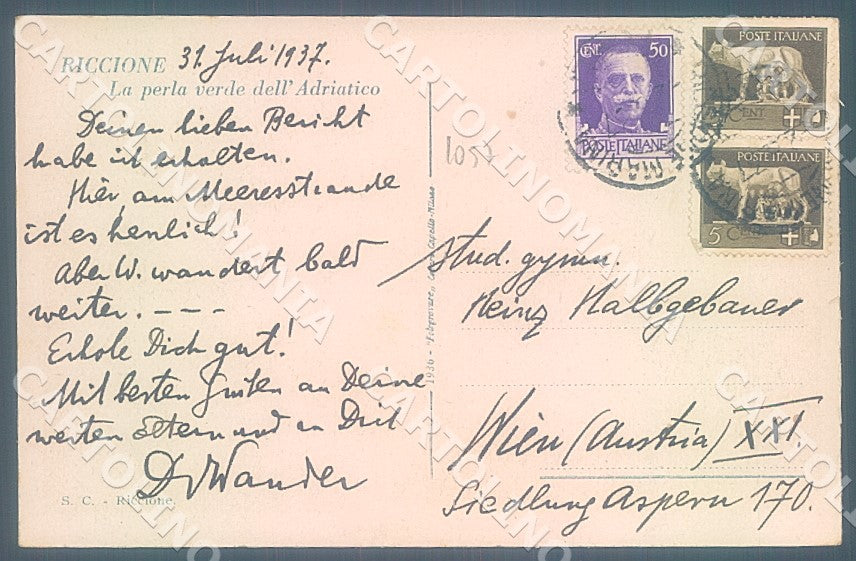 RICCIONE 31. Juli 1937.
La perla verde dell'Adriatico
Deinen lieben Bericht
habe ich erhalten.
Hier, am Meeresstrande
ist es herrlich!
Aber W. wandert bald
weiter. - - -
Erhole Dich gut!
Mit besten Grüßen an Deine
werten Eltern und an Dich
Dr Wander
S. C. - Riccione.
1936 -
105
CENT. 50
POSTE ITALIANE
POSTE ITALIANE
CENT
POSTE ITALIANE
5 CENT
Stud. gymn.
Heinz Halbgebauer
Wien (Austria) XXI.
Siedlung Aspern 170.
CARTOLINOMANIA